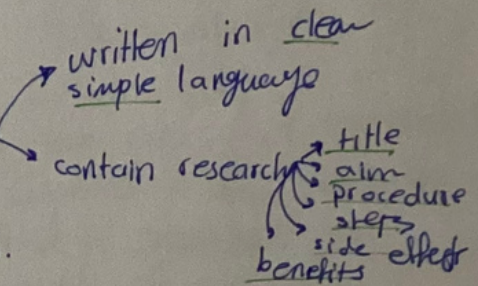 written in clear
simple language
contain research
title
aim
procedure
steps
side effect
benefits